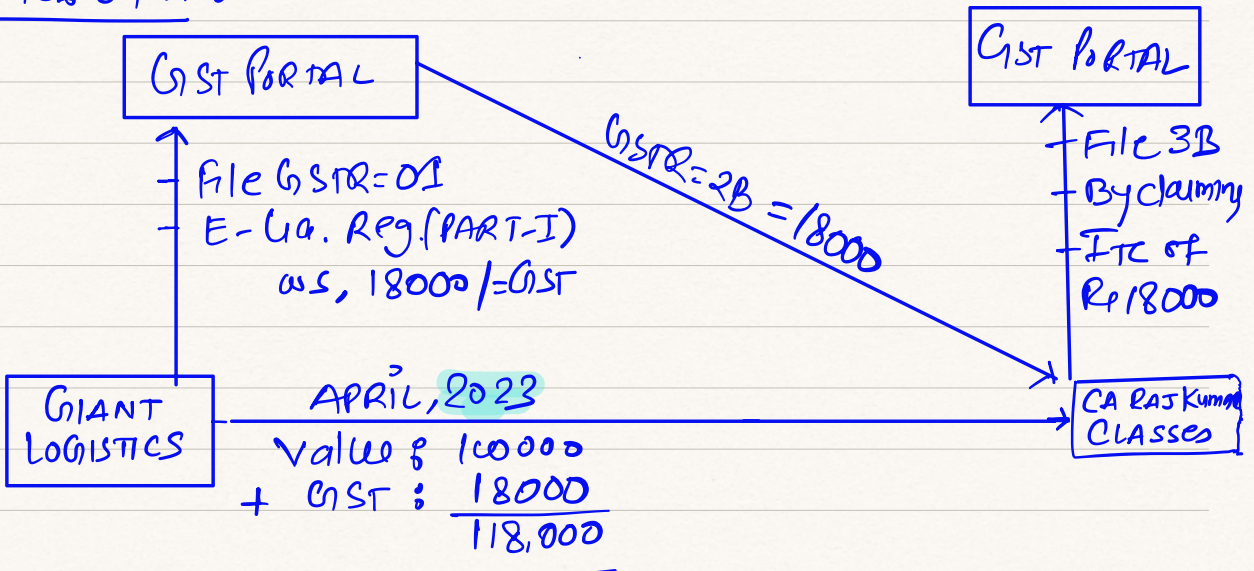 GST PORTAL
GST PORTAL
File GSTR=01
E- Reg.(PART-I)
as, 18000/=GST
GSTR=2B =18000
File 3B
By claiming
ITC of
Rs 18000
GIANT
LOGISTICS
APRIL, 2023
Value : 100000
+ GST : 18000
118,000
CA RAJ Kumar
CLASSES